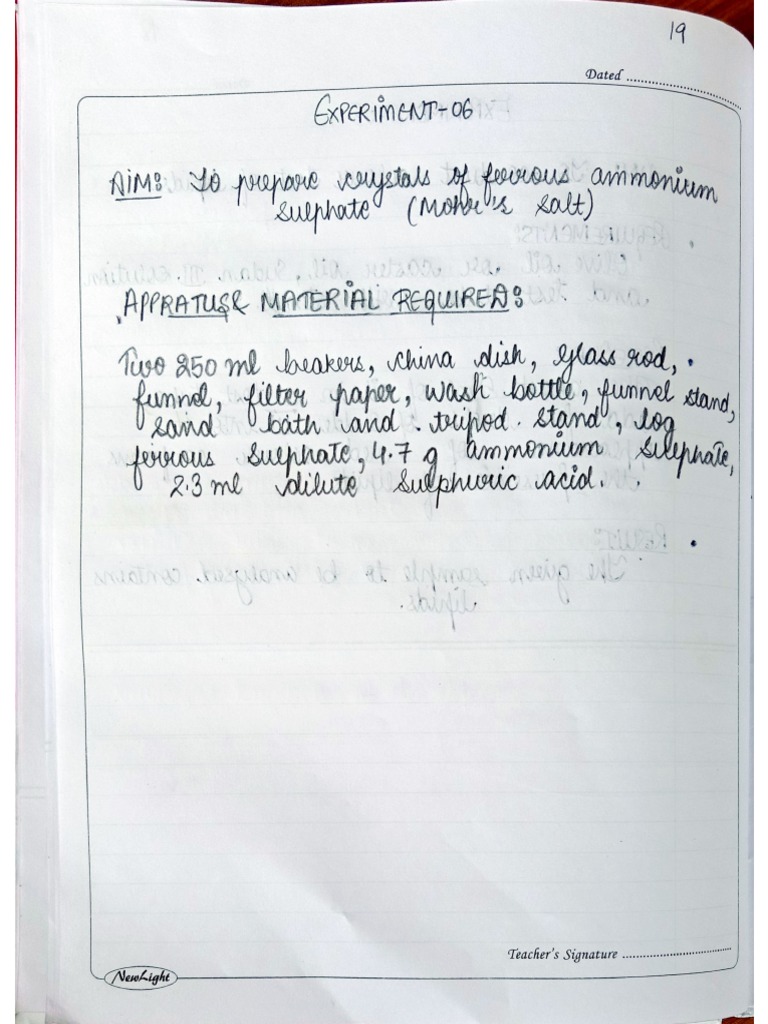 19
Dated
EXPERIMENT-06
AIM: To prepare crystals of ferrous ammonium
sulphate (Mohr's salt)
APPRATUS & MATERIAL REQUIRED:
Two 250 ml beakers, china dish, glass rod,
funnel, filter paper, wash bottle, funnel stand,
sand bath and tripod stand, log
ferrous sulphate, 4.7 g ammonium sulphate,
2.3 ml dilute sulphuric acid.
Teacher's Signature
NewLight